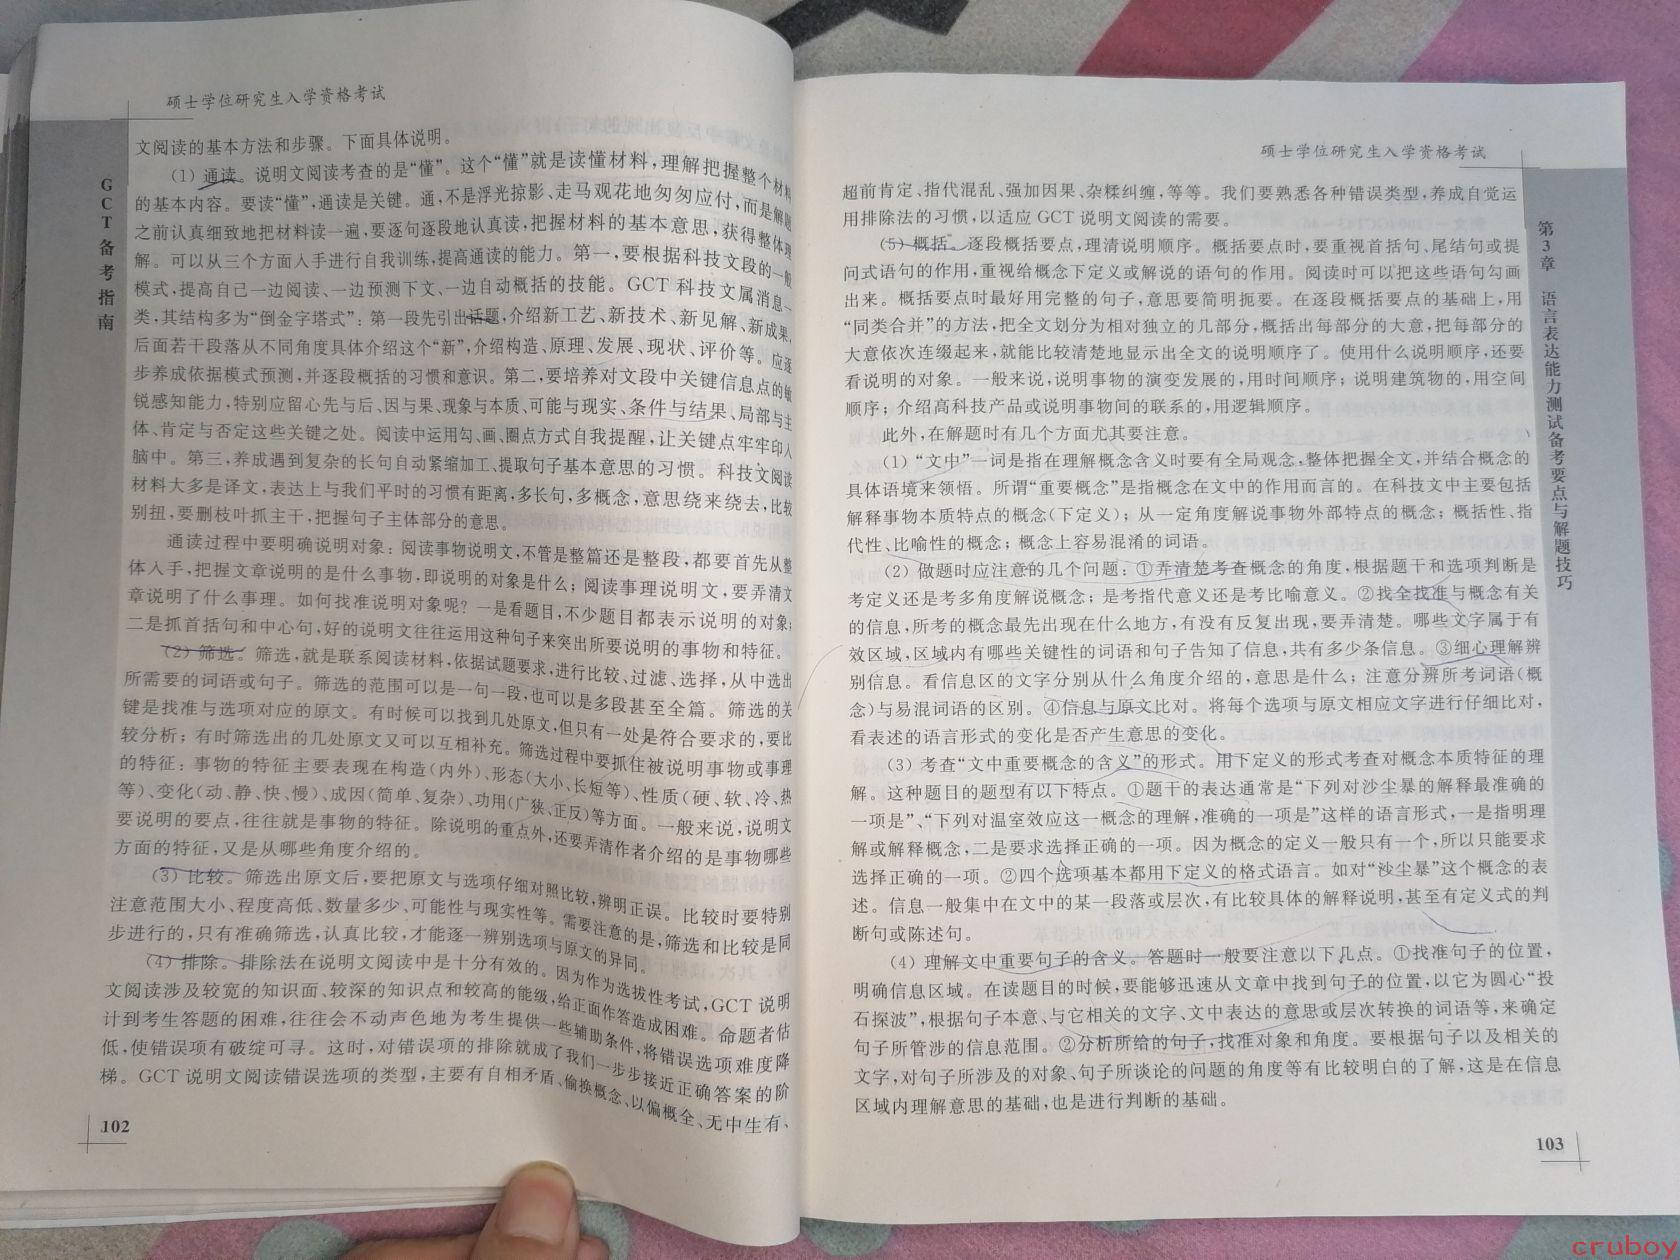 硕士学位研究生入学资格考试
GCT备考指南
文阅读的基本方法和步骤。下面具体说明。
(1) 通读。说明文阅读考查的是“懂”。这个“懂”就是读懂材料,理解把握整个材料
的基本内容。要读“懂”,通读是关键。通,不是浮光掠影、走马观花地匆匆应付,而是解题
之前认真细致地把材料读一遍,要逐句逐段地认真读,把握材料的基本意思,获得整体理
解。可以从三个方面入手进行自我训练,提高通读的能力。第一,要根据科技文段的一般
模式,提高自己一边阅读、一边预测下文、一边自动概括的技能。GCT科技文属消息一
类,其结构多为“倒金字塔式”:第一段先引出话题,介绍新工艺、新技术、新见解、新成果,
后面若干段落从不同角度具体介绍这个“新”,介绍构造、原理、发展、现状、评价等。应逐
步养成依据模式预测,并逐段概括的习惯和意识。第二,要培养对文段中关键信息点的敏
锐感知能力,特别应留心先与后、因与果、现象与本质、可能与现实、条件与结果、局部与主
体、肯定与否定这些关键之处。阅读中运用勾、画、圈点方式自我提醒,让关键点牢牢印入
脑中。第三,养成遇到复杂的长句自动紧缩加工、提取句子基本意思的习惯。科技文阅读
材料大多是译文,表达上与我们平时的习惯有距离,多长句,多概念,意思绕来绕去,比较
别扭,要删枝叶抓主干,把握句子主体部分的意思。
通读过程中要明确说明对象:阅读事物说明文,不管是整篇还是整段,都要首先从整
体入手,把握文章说明的是什么事物,即说明的对象是什么;阅读事理说明文,要弄清文
章说明了什么事理。如何找准说明对象呢?一是看题目,不少题目都表示说明的对象;
二是抓首括句和中心句,好的说明文往往运用这种句子来突出所要说明的事物和特征。
(2) 筛选。筛选,就是联系阅读材料,依据试题要求,进行比较、过滤、选择,从中选出
所需要的词语或句子。筛选的范围可以是一句一段,也可以是多段甚至全篇。筛选的关
键是找准与选项对应的原文。有时候可以找到几处原文,但只有一处是符合要求的,要比
较分析;有时筛选出的几处原文又可以互相补充。筛选过程中要抓住被说明事物或事理
的特征:事物的特征主要表现在构造(内外)、形态(大小、长短等)、性质(硬、软、冷、热
等)、变化(动、静、快、慢)、成因(简单、复杂)、功用(广狭、正反)等方面。一般来说,说明文
要说明的要点,往往就是事物的特征。除说明的重点外,还要弄清作者介绍的是事物哪些
方面的特征,又是从哪些角度介绍的。
(3) 比较。筛选出原文后,要把原文与选项仔细对照比较,辨明正误。比较时要特别
注意范围大小、程度高低、数量多少、可能性与现实性等。需要注意的是,筛选和比较是同
步进行的,只有准确筛选,认真比较,才能逐一辨别选项与原文的异同。
(4) 排除。排除法在说明文阅读中是十分有效的。因为作为选拔性考试,GCT说明
文阅读涉及较宽的知识面、较深的知识点和较高的能级,给正面作答造成困难。命题者估
计到考生答题的困难,往往会不动声色地为考生提供一些辅助条件,将错误选项难度降
低,使错误项有破绽可寻。这时,对错误项的排除就成了我们一步步接近正确答案的阶
梯。GCT说明文阅读错误选项的类型,主要有自相矛盾、偷换概念、以偏概全、无中生有、
102
硕士学位研究生入学资格考试
第3章 语言表达能力测试备考要点与解题技巧
超前肯定、指代混乱、强加因果、杂糅纠缠,等等。我们要熟悉各种错误类型,养成自觉运
用排除法的习惯,以适应GCT说明文阅读的需要。
(5) 概括。逐段概括要点,理清说明顺序。概括要点时,要重视首括句、尾结句或提
问式语句的作用,重视给概念下定义或解说的语句的作用。阅读时可以把这些语句勾画
出来。概括要点时最好用完整的句子,意思要简明扼要。在逐段概括要点的基础上,用
“同类合并”的方法,把全文划分为相对独立的几部分,概括出每部分的大意,把每部分的
大意依次连缀起来,就能比较清楚地显示出全文的说明顺序了。使用什么说明顺序,还要
看说明的对象。一般来说,说明事物的演变发展的,用时间顺序;说明建筑物的,用空间
顺序;介绍高科技产品或说明事物间的联系的,用逻辑顺序。
此外,在解题时有几个方面尤其要注意。
(1) “文中”一词是指在理解概念含义时要有全局观念,整体把握全文,并结合概念的
具体语境来领悟。所谓“重要概念”是指概念在文中的作用而言的。在科技文中主要包括
解释事物本质特点的概念(下定义);从一定角度解说事物外部特点的概念;概括性、指
代性、比喻性的概念;概念上容易混淆的词语。
(2) 做题时应注意的几个问题:①弄清楚考查概念的角度,根据题干和选项判断是
考定义还是考多角度解说概念;是考指代意义还是考比喻意义。②找全找准与概念有关
的信息,所考的概念最先出现在什么地方,有没有反复出现,要弄清楚。哪些文字属于有
效区域,区域内有哪些关键性的词语和句子告知了信息,共有多少条信息。③细心理解辨
别信息。看信息区的文字分别从什么角度介绍的,意思是什么;注意分辨所考词语(概
念)与易混词语的区别。④信息与原文比对。将每个选项与原文相应文字进行仔细比对,
看表述的语言形式的变化是否产生意思的变化。
(3) 考查“文中重要概念的含义”的形式。用下定义的形式考查对概念本质特征的理
解。这种题目的题型有以下特点。①题干的表达通常是“下列对沙尘暴的解释最准确的
一项是”、“下列对温室效应这一概念的理解,准确的一项是”这样的语言形式,一是指明理
解或解释概念,二是要求选择正确的一项。因为概念的定义一般只有一个,所以只能要求
选择正确的一项。②四个选项基本都用下定义的格式语言。如对“沙尘暴”这个概念的表
述。信息一般集中在文中的某一段落或层次,有比较具体的解释说明,甚至有定义式的判
断句或陈述句。
(4) 理解文中重要句子的含义。答题时一般要注意以下几点。①找准句子的位置,
明确信息区域。在读题目的时候,要能够迅速从文章中找到句子的位置,以它为圆心“投
石探波”,根据句子本意、与它相关的文字、文中表达的意思或层次转换的词语等,来确定
句子所管涉的信息范围。②分析所给的句子,找准对象和角度。要根据句子以及相关的
文字,对句子所涉及的对象、句子所谈论的问题的角度等有比较明白的了解,这是在信息
区域内理解意思的基础,也是进行判断的基础。
103
cruboy